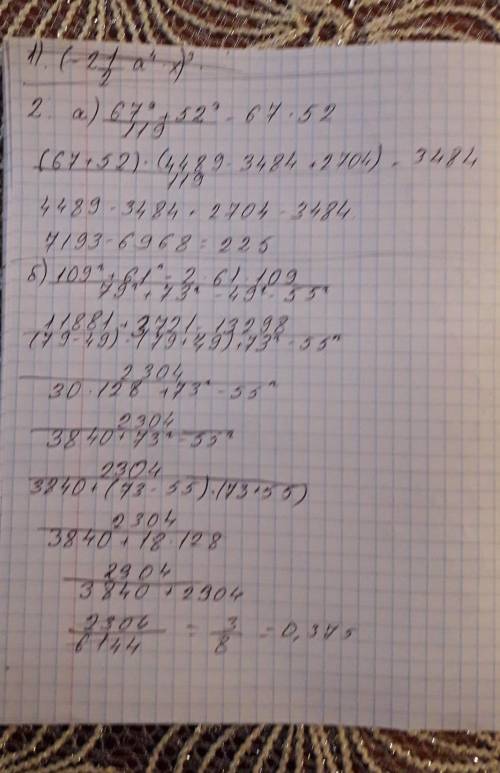 1). (-2 1/2 a⁴ · x)³ ·
2. а) (67³ + 52³)/119 - 67 · 52
((67+52) · (4489 - 3484 + 2704))/119 - 3484
4489 - 3484 + 2704 - 3484
7193 - 6968 = 225
б) (109² + 61² - 2 · 61 · 109)/(79² + 73² - 49² - 55²)
(11881 + 3721 - 13298)/((79-49) · (79+49) + 73² - 55²)
2304/(30 · 128 + 73² - 55²)
2304/(3840 + 73² - 55²)
2304/(3840 + (73 - 55) · (73+55))
2304/(3840 + 18 · 128)
2304/(3840 + 2304)
2304/6144 = 3/8 = 0,375